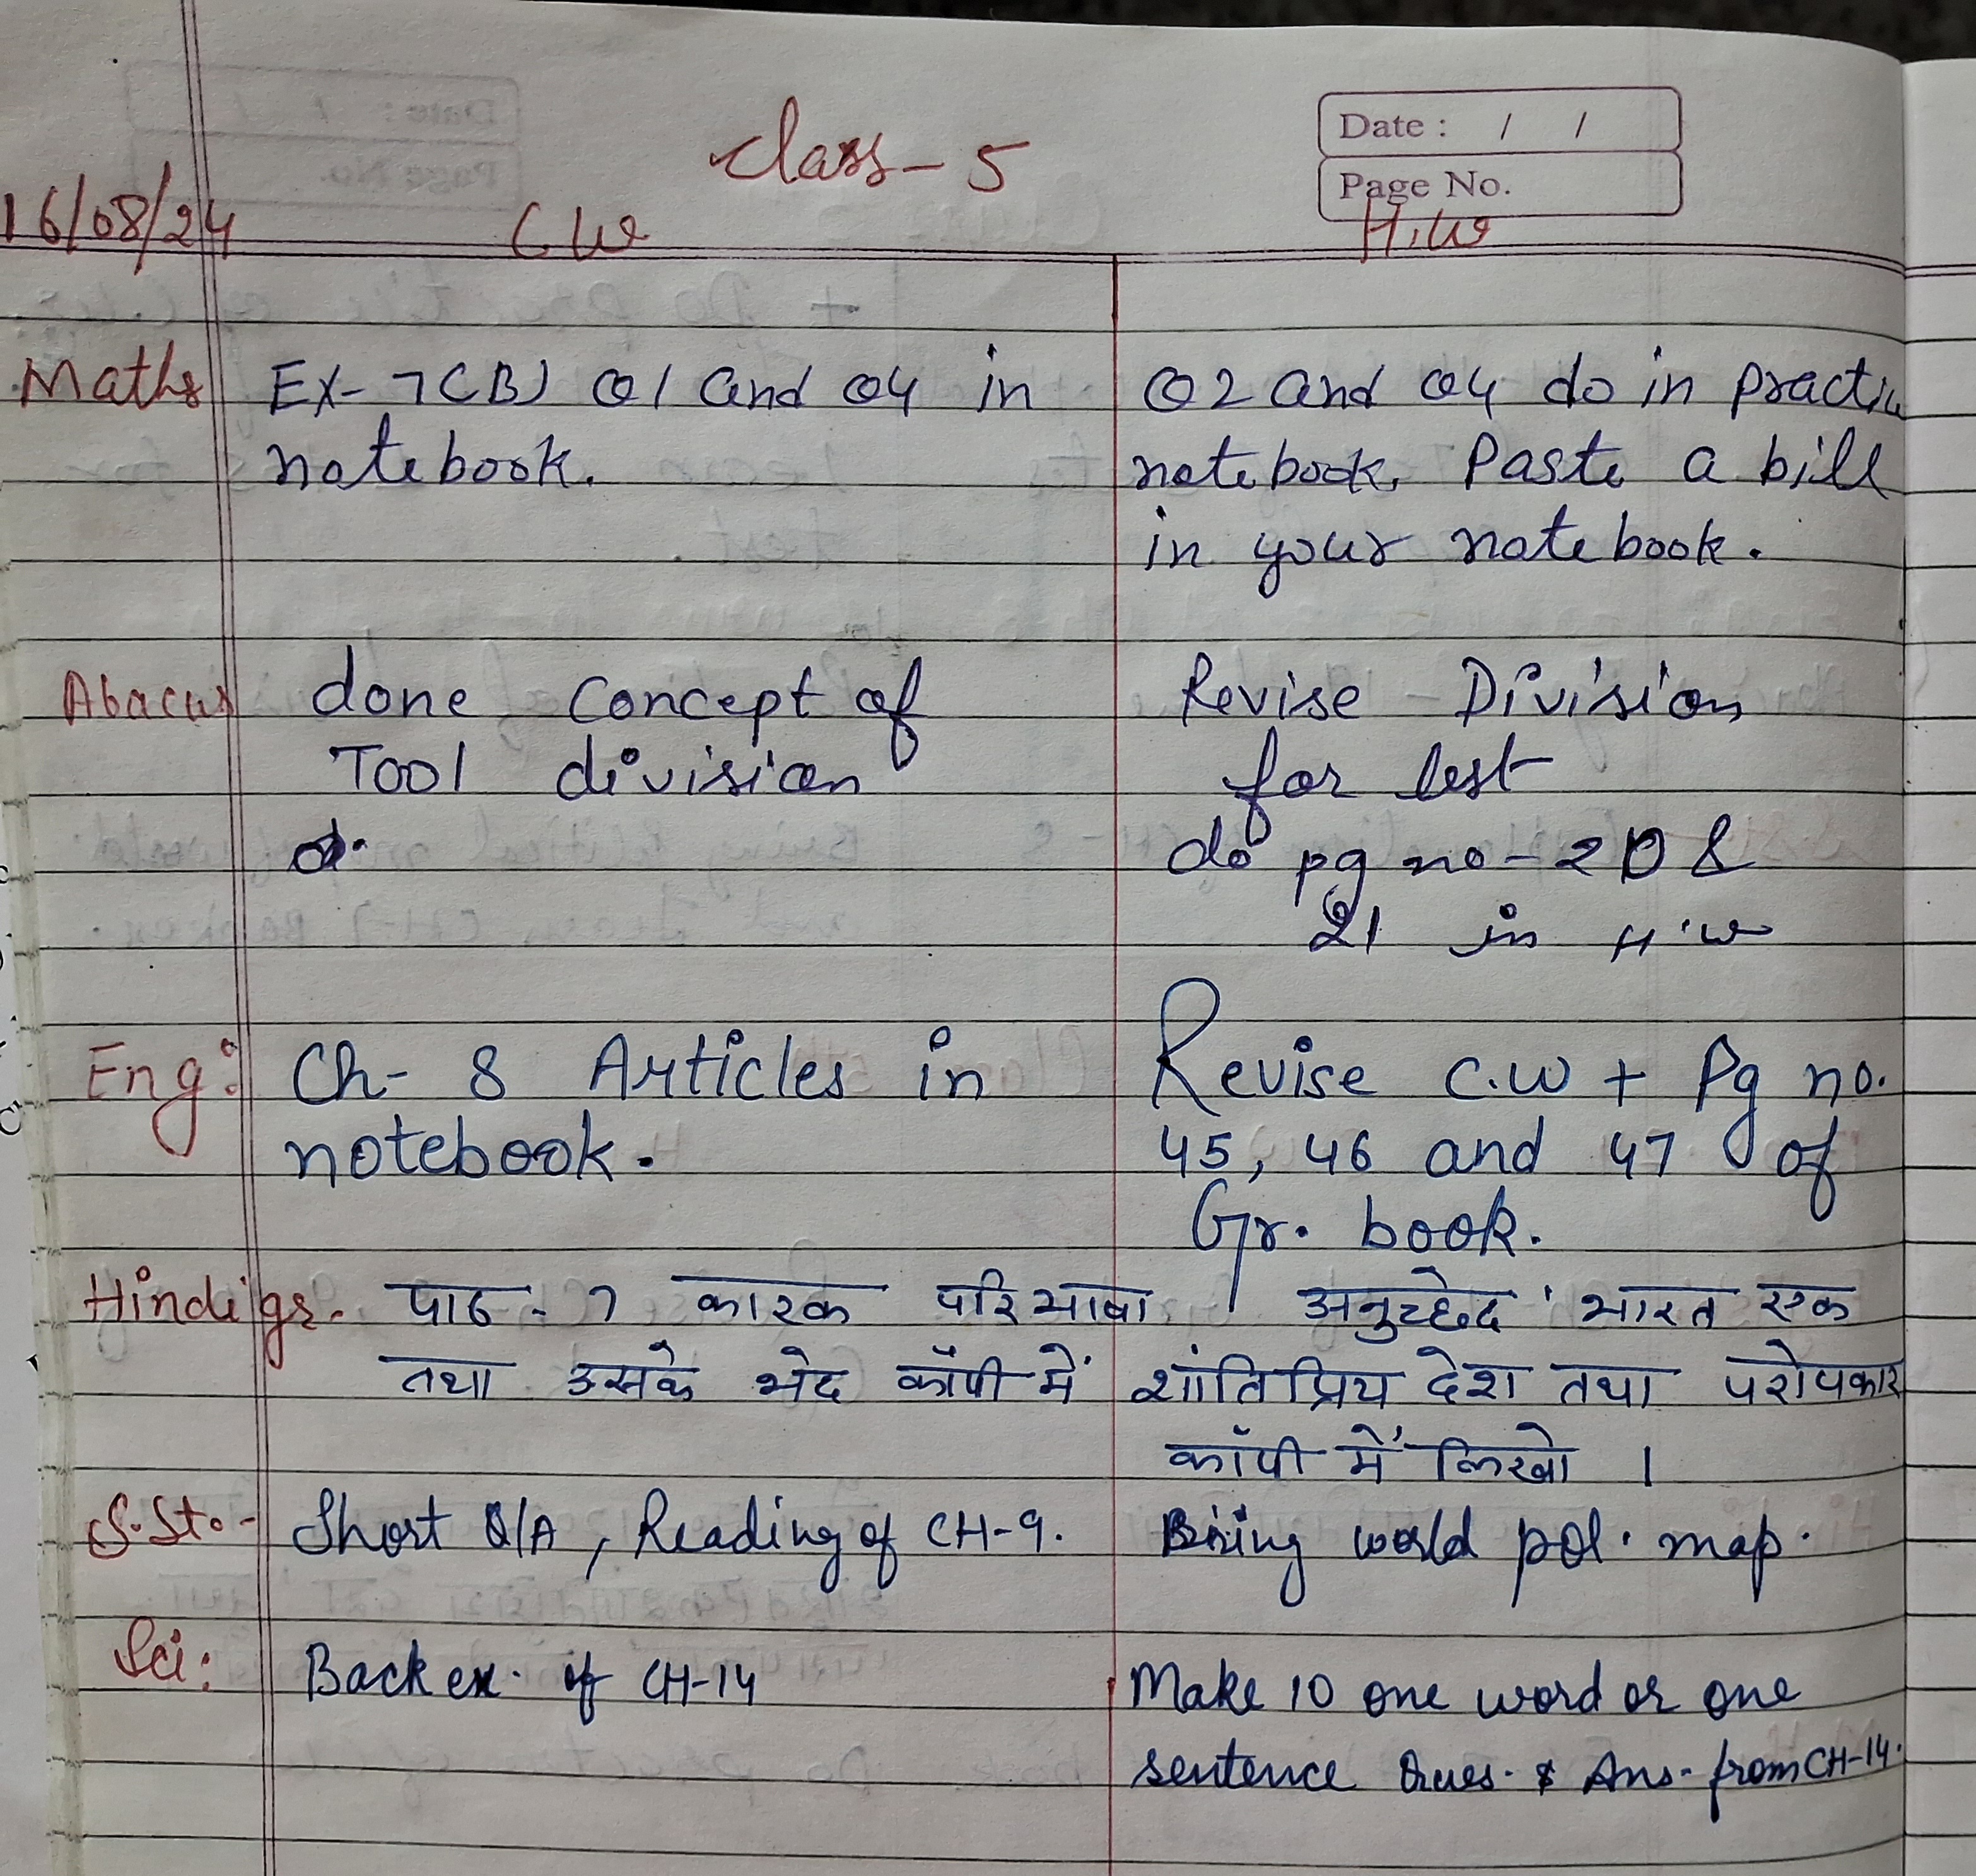 Class-5
Date : / /
Page No.
16/08/24
C.W
H.W
Maths
Ex-7(B) Q1 and Q4 in
notebook.
Q2 and Q4 do in
notebook. Paste a bill
in your notebook.
Abacus
done concept of
Tool division
Revise - Division
for test
do pg no-20 &
21 in H.W
Eng:
Ch- 8 Articles in
notebook.
Revise C.W + Pg no.
45, 46 and 47 of
Gr. book.
Hindi gr.
पाठ - 7 कारक परिभाषा
तथा उसके भेद कॉपी में
अनुच्छेद ' भारत एक
शांतिप्रिय देश तथा परोपकार
कॉपी में लिखो ।
S.St.-
Short Q/A, Reading of CH-9.
Bring world pol. map.
Sci:
Back ex. of CH-14
Make 10 one word or one
sentence Ques. & Ans. from CH-14.